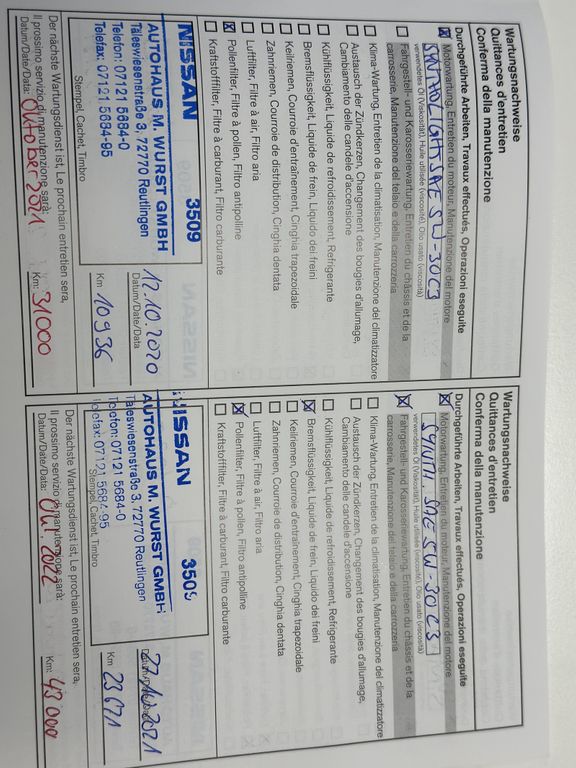 Wartungsnachweise
Quittances d'entretien
Conferma della manutenzione
Durchgeführte Arbeiten, Travaux effectués, Operazioni eseguite
Motorwartung, Entretien du moteur, Manutenzione del motore
SAE 5W-30 C3
verwendetes Öl (Viskosität), Huile utilisée (viscosité), Olio usato (viscosità)
Fahrgestell- und Karosseriewartung, Entretien du châssis et de la
carrosserie, Manutenzione del telaio e della carrozzeria
Klima-Wartung, Entretien de la climatisation, Manutenzione del climatizzatore
Austausch der Zündkerzen, Changement des bougies d'allumage,
Cambiamento delle candele d'accensione
Kühlflüssigkeit, Liquide de refroidissement, Refrigerante
Bremsflüssigkeit, Liquide de frein, Liquido dei freini
Keilriemen, Courroie d'entraînement, Cinghia trapezoidale
Zahnriemen, Courroie de distribution, Cinghia dentata
Luftfilter, Filtre à air, Filtro aria
Pollenfilter, Filtre à pollen, Filtro antipolline
Kraftstofffilter, Filtre à carburant, Filtro carburante
NISSAN 3509
AUTOHAUS M. WURST GMBH
Täleswiesenstraße 3, 72770 Reutlingen
Telefon: 07121 5684-0
Telefax: 07121 5684-95
Stempel, Cachet, Timbro
12.10.2020
Datum/Date/Data
10936
Km
Der nächste Wartungsdienst ist, Le prochain entretien sera,
Il prossimo servizio di manutenzione sarà:
Datum/Date/Data: Oktober 2021
Km: 31000
Wartungsnachweise
Quittances d'entretien
Conferma della manutenzione
Durchgeführte Arbeiten, Travaux effectués, Operazioni eseguite
Motorwartung, Entretien du moteur, Manutenzione del motore
SYNTH. SAE 5W-30 C3
verwendetes Öl (Viskosität), Huile utilisée (viscosité), Olio usato (viscosità)
Fahrgestell- und Karosseriewartung, Entretien du châssis et de la
carrosserie, Manutenzione del telaio e della carrozzeria
Klima-Wartung, Entretien de la climatisation, Manutenzione del climatizzatore
Austausch der Zündkerzen, Changement des bougies d'allumage,
Cambiamento delle candele d'accensione
Kühlflüssigkeit, Liquide de refroidissement, Refrigerante
Bremsflüssigkeit, Liquide de frein, Liquido dei freini
Keilriemen, Courroie d'entraînement, Cinghia trapezoidale
Zahnriemen, Courroie de distribution, Cinghia dentata
Luftfilter, Filtre à air, Filtro aria
Pollenfilter, Filtre à pollen, Filtro antipolline
Kraftstofffilter, Filtre à carburant, Filtro carburante
NISSAN 3509
AUTOHAUS M. WURST GMBH
Täleswiesenstraße 3, 72770 Reutlingen
Telefon: 07121 5684-0
Telefax: 07121 5684-95
Stempel, Cachet, Timbro
Datum/Date/Data
23671
Km
Der nächste Wartungsdienst ist, Le prochain entretien sera,
Il prossimo servizio di manutenzione sarà:
Datum/Date/Data: Okt 2022
Km: 43000